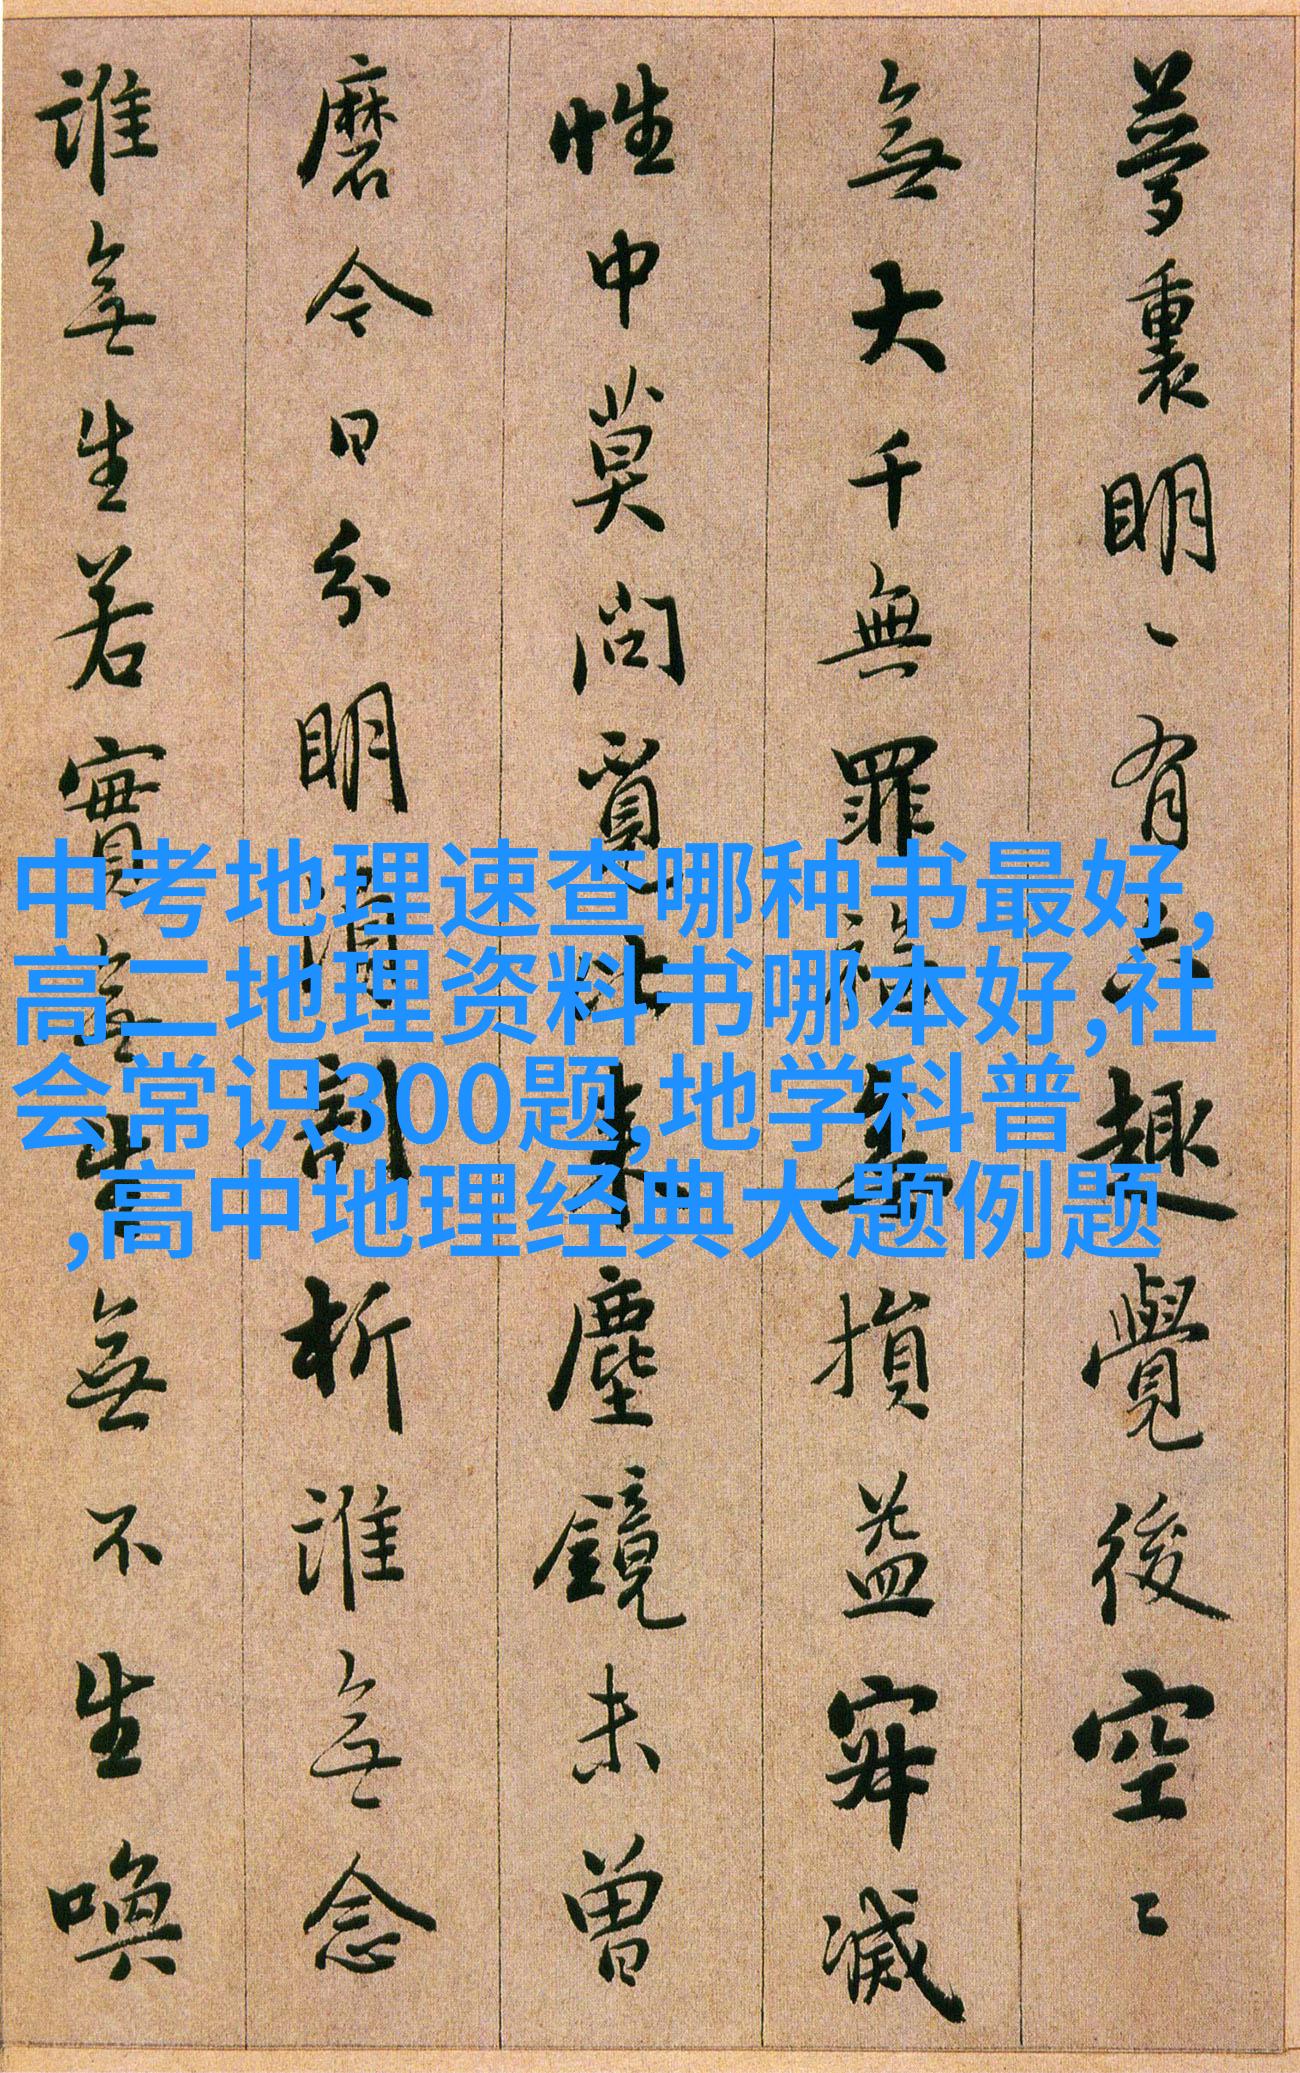 夢裏明〻有六趣覺後空〻
無大千無罪福無損益寂滅
性中莫問覓比来塵鏡未曾
磨今日分明須剖析誰無念
誰無生若實無生無不生喚
中考地理速查哪种书最好,
高二地理资料书哪本好,社
会常识300题,地学科普
,高中地理经典大题例题